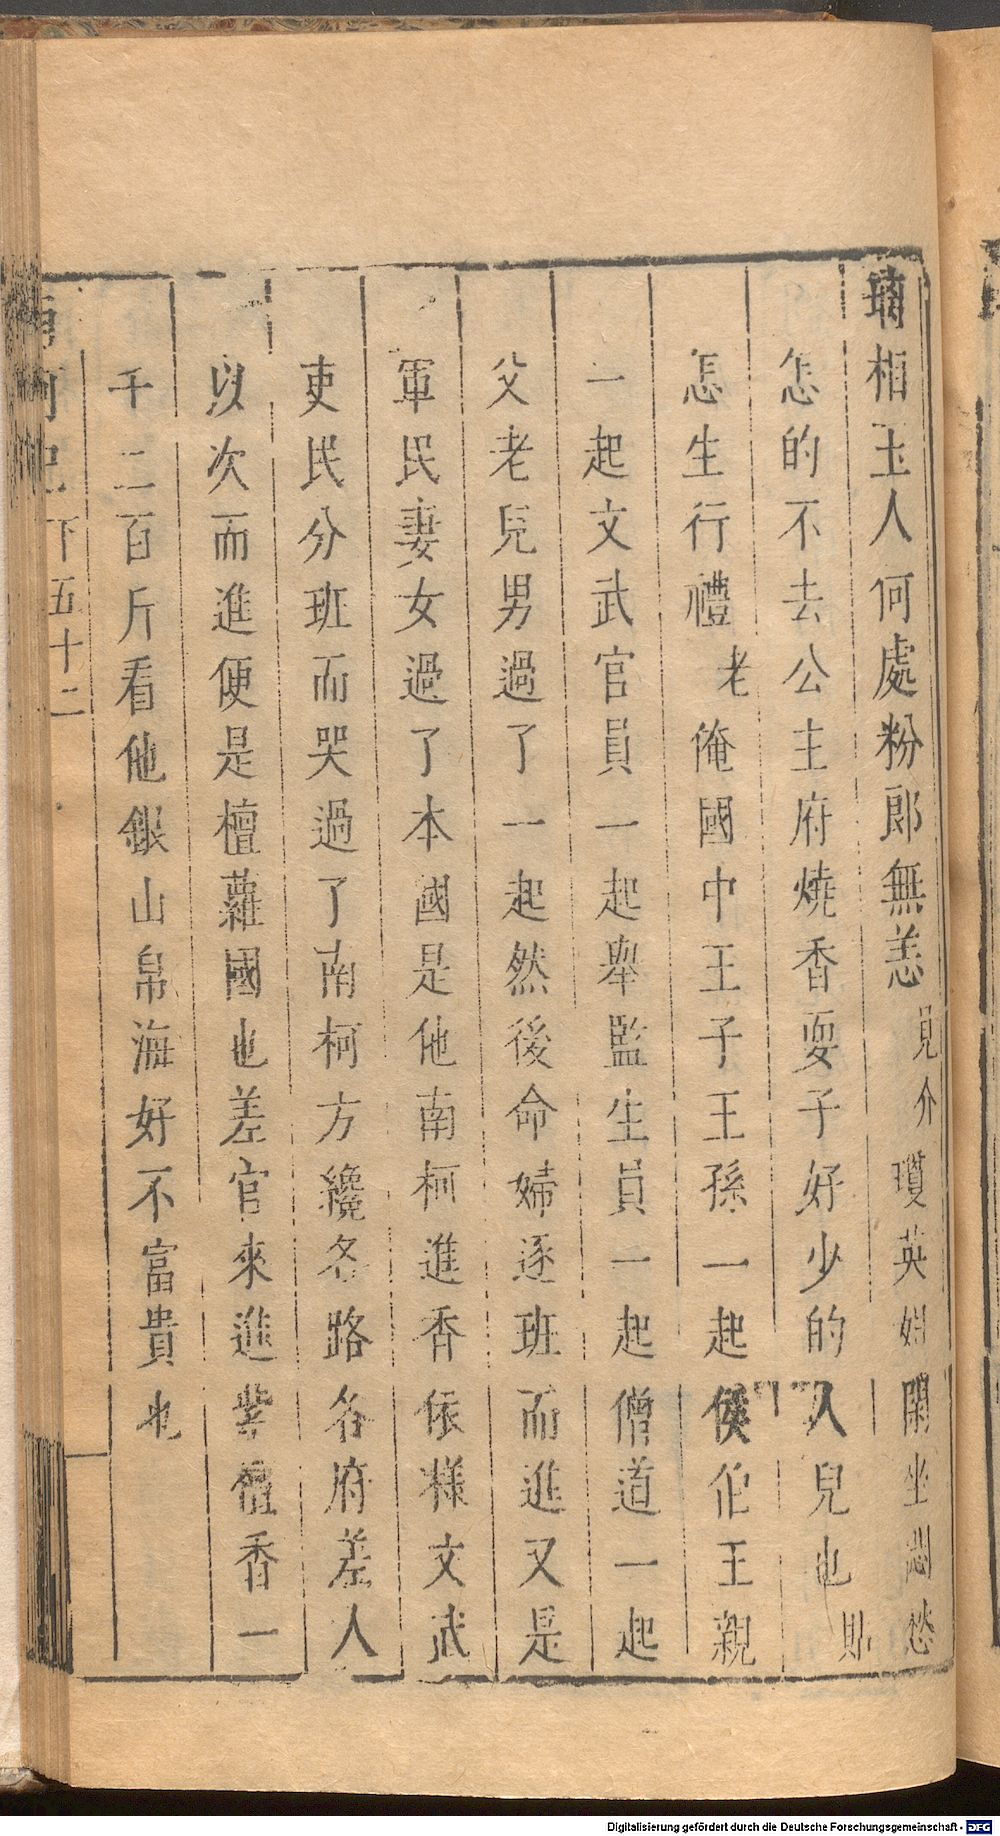 瑀相玉人何處粉郎無恙見介瓊英姐閑坐悶愁
怎的不去公主府燒香耍子好少的人兒也貼
怎生行禮老俺國中王子王孫一起侯伯王親
一起文武官員一起舉監生員一起僧道一起
父老兒男過了一起然後命婦逐班而進又是
軍民妻女過了本國是他南柯進香依樣文武
吏民分班而哭過了南柯方纔各路各府差人
以次而進便是檀蘿國也差官來進紫檀香一
千二百斤看他銀山帛海好不富貴也
南柯記下五十二
Digitalisierung gefördert durch die Deutsche Forschungsgemeinschaft - DFG